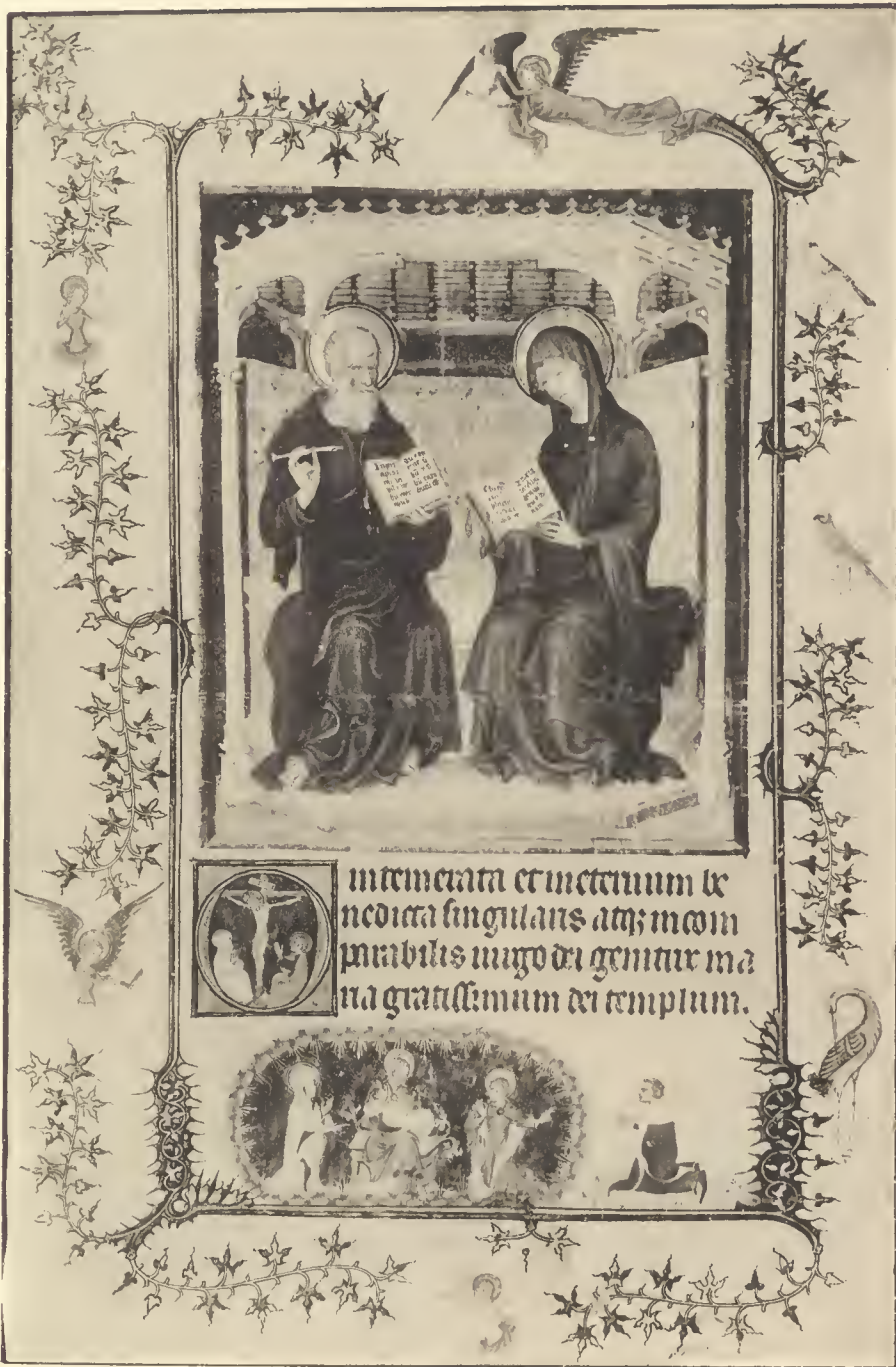 O intemerata et ineternum be
nedicta singularis atq; incom
parabilis uirgo dei genitrix ma
ria gratissimum dei templum.